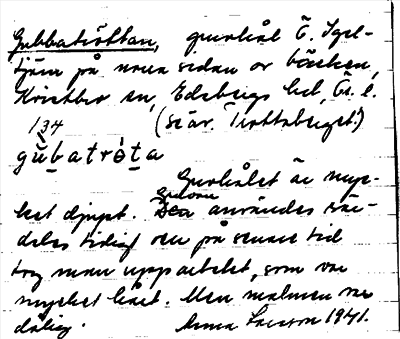 Gubbatröttan, gruvhål Ö. Igel-
tjärn på norra sidan av bäcken,
Kristbo sn, Edsbergs hd, Ör. l.
134 (se är. Trottaberget!)
gu̇batrȯta
Gruvhålet är myc-
ket djupt. Gruvan användes sär-
deles tidigt och på senare tid
tog man upp arbetet, som var
mycket hårt. Men malmen var
dålig. Anna Larsson 1941.